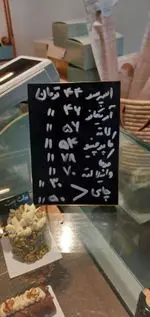 اسپرسو ۴۴ تومان
آمریکانو ۴۶ //
لاته ۵۷ //
کاپوچینو ۵۴ //
موکا ۷۸ //
وانیلا لاته ۷۰ //
چای < ۳۰ //
۵۰ //